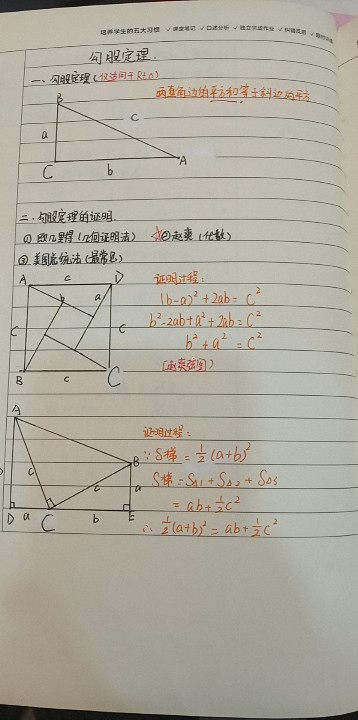 培养学生的五大习惯 ✓课堂笔记 ✓口述分析 ✓独立完成作业 ✓纠错反思
勾股定理.
一、勾股定理(仅适用于Rt△)
两直角边的平方和等于斜边的平方.
B
a
c
C
b
A
二.勾股定理的证明.
① 欧几里得(几何证明法) ②赵爽(代数)
③ 美国总统法(最常见)
A
c
D
b
a
C
c
B
c
C
证明过程:
(b-a)²+2ab=C²
b²-2ab+a²+2ab=C²
b²+a²=C²
(赵爽弦图)
A
b
c
c
B
a
D
a
C
b
E
证明过程:
∵S梯=½(a+b)²
S梯=S△1+S△2+S△3
=ab+½c²
∴½(a+b)²=ab+½c²